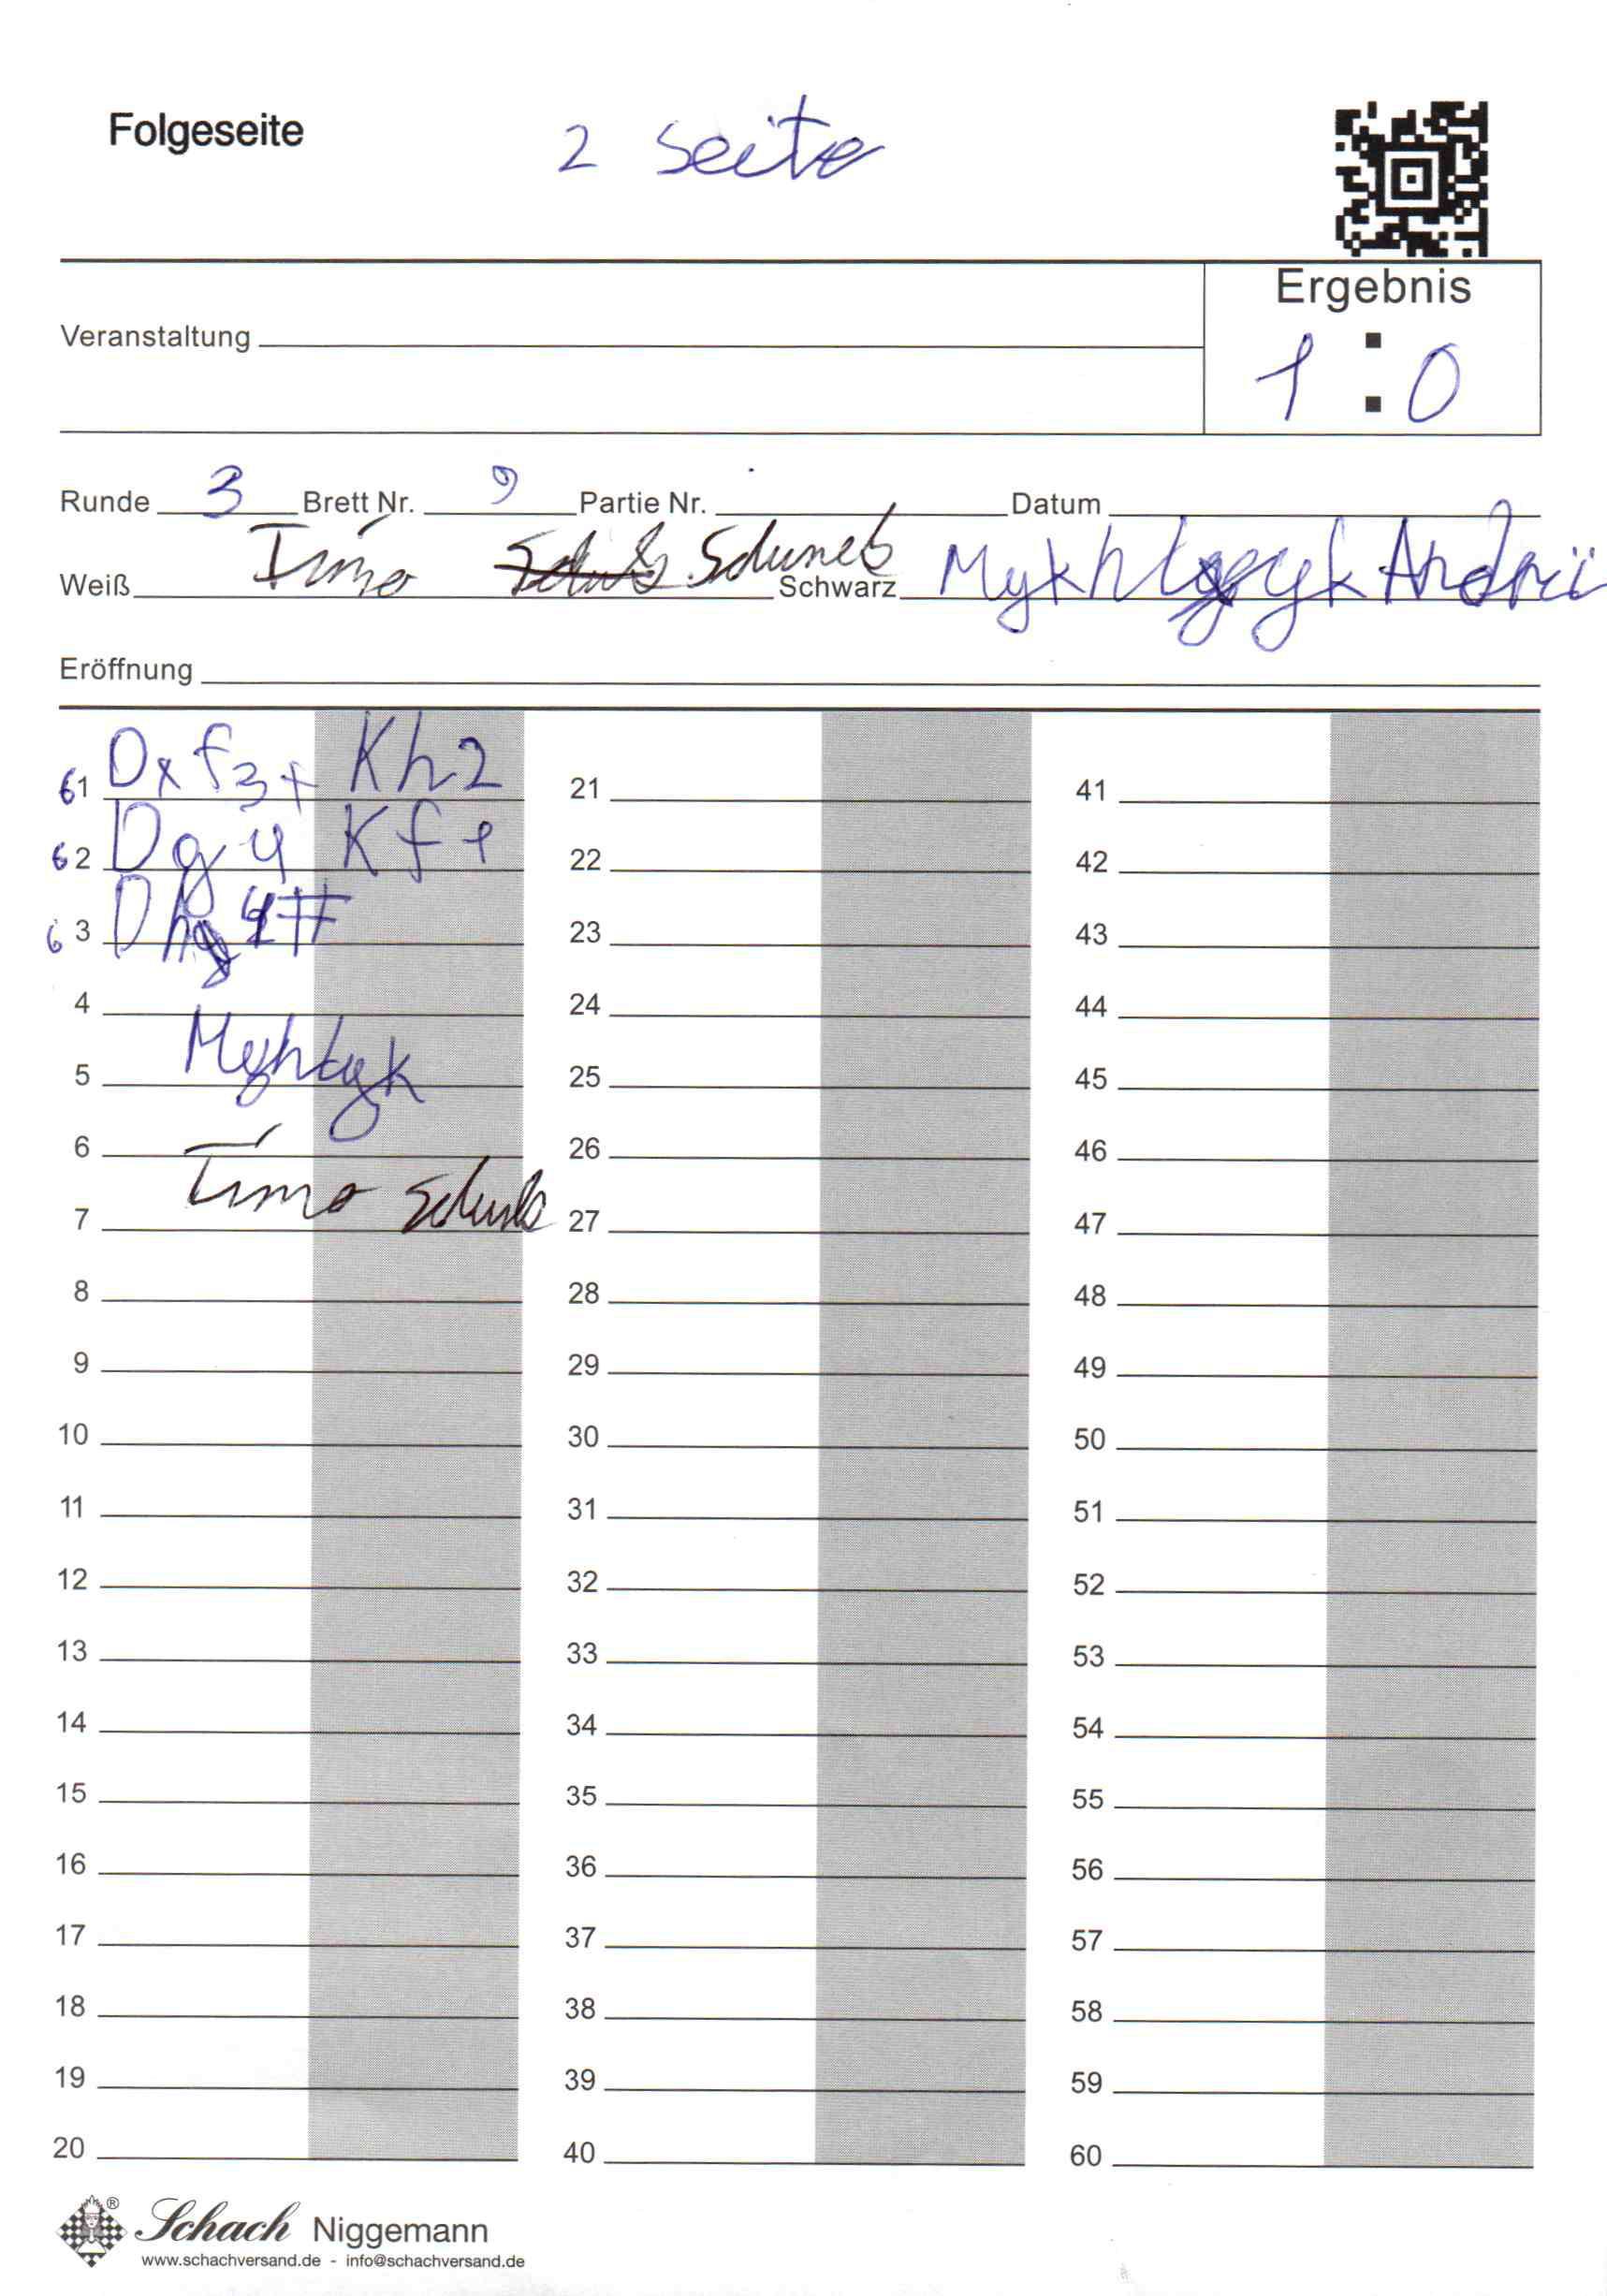 Folgeseite 2 Seite
Ergebnis
1 : 0
Veranstaltung
Runde 3 Brett Nr. 9 Partie Nr. Datum
Weiß Timo Schwarz Andrii
Eröffnung
61 Dxf3+ Kh2 21 41
62 Dg4 Kf1 22 42
63 Dh4# 23 43
4 24 44
5 25 45
6 26 46
7 Timo 27 47
8 28 48
9 29 49
10 30 50
11 31 51
12 32 52
13 33 53
14 34 54
15 35 55
16 36 56
17 37 57
18 38 58
19 39 59
20 40 60
® Schach Niggemann
www.schachversand.de - info@schachversand.de